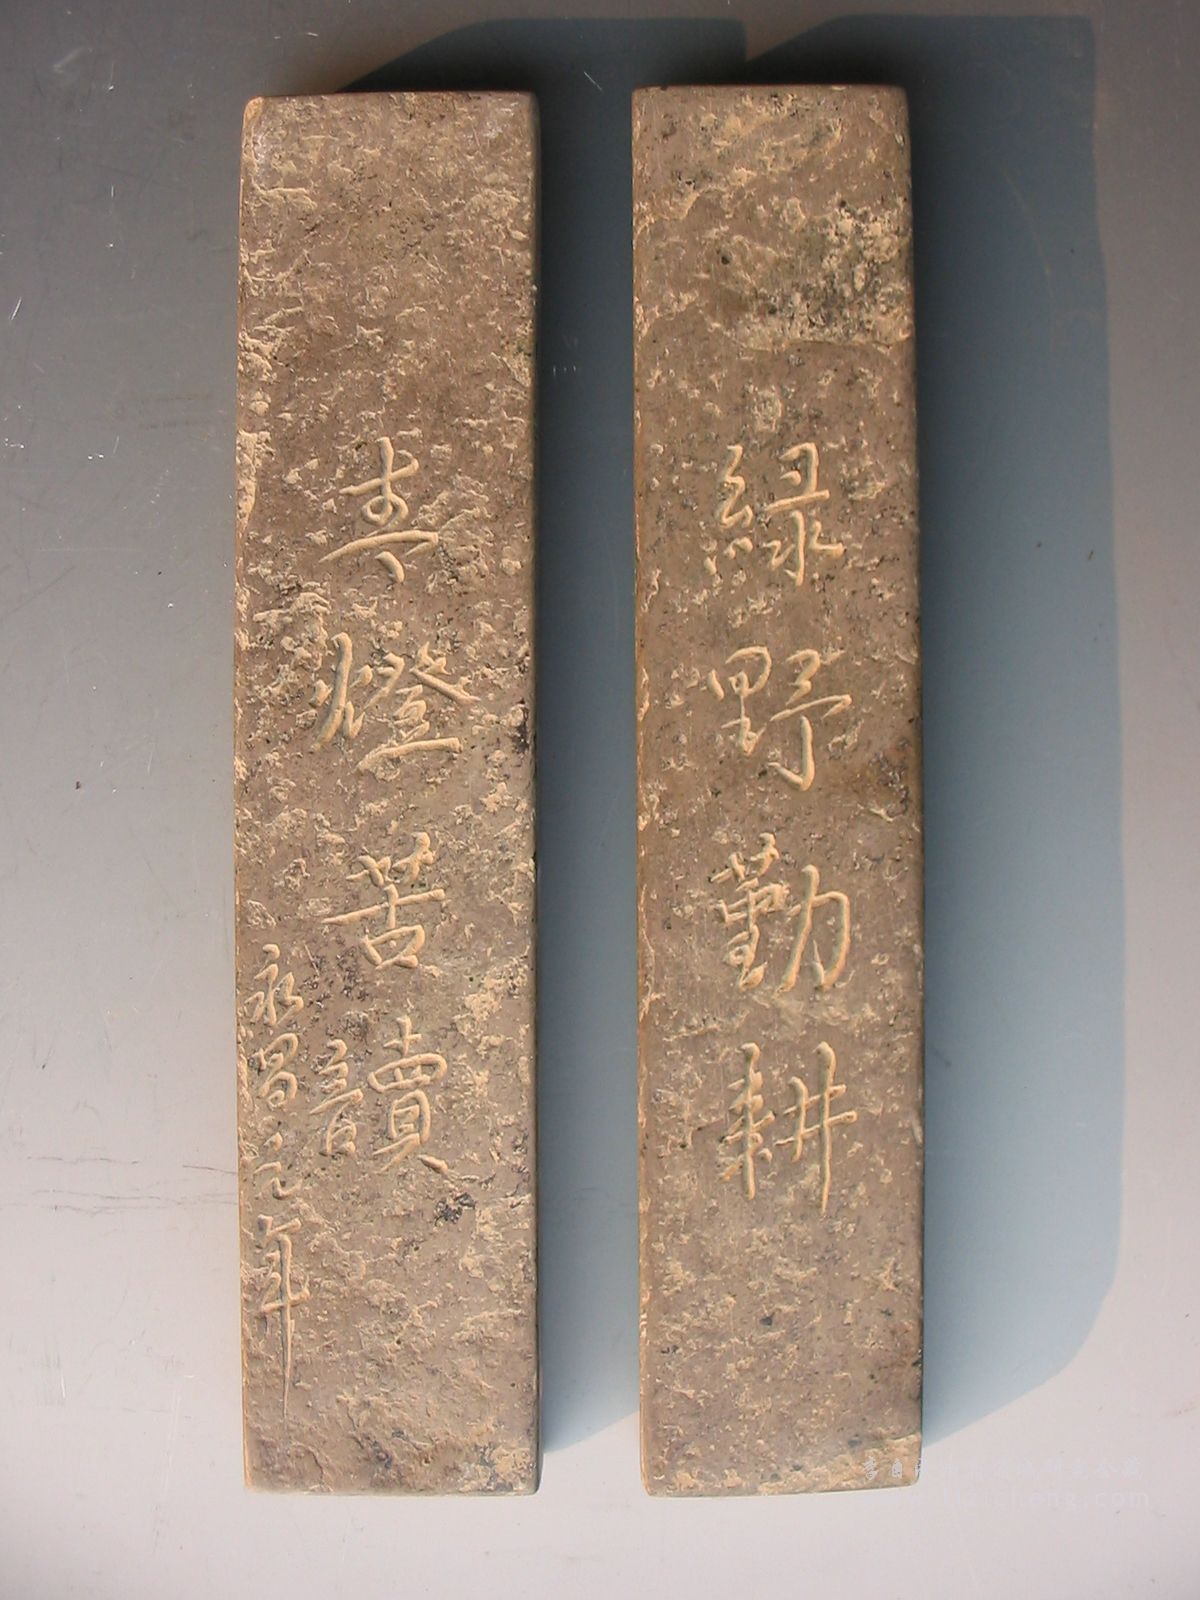 綠野勤耕
青燈苦讀
永昌元年